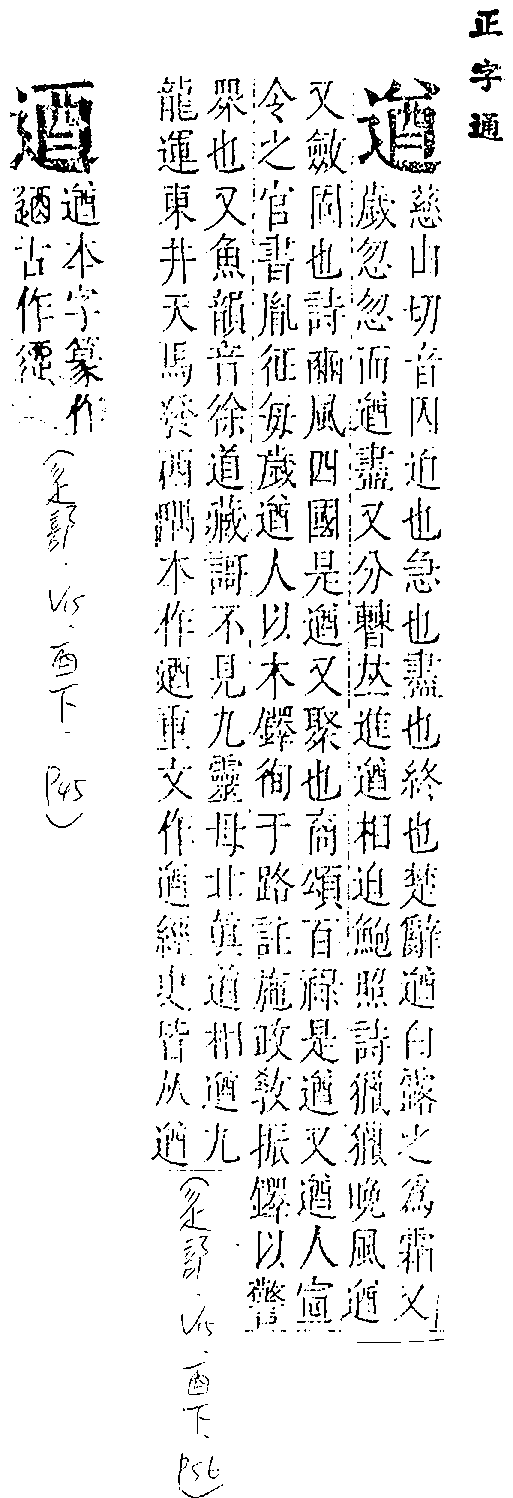 正字通
遒
慈由切音囚迫也急也盡也終也楚辭遒白露之為霜又
歲忽忽而遒盡又分曹並進遒相迫鮑照詩獵獵晚風遒
又斂固也詩豳風四國是遒又聚也商頌百祿是遒又遒人宣
令之官書胤征每歲遒人以木鐸徇于路註施政敎振鐸以警
眾也又魚韻音徐道藏謌不見九靈母北眞道相遒九
龍運東井天馬發西隅本作迺重文作遒經史皆从遒
(辵部.V15.酉下.P56)
逎
遒本字篆作
古作
(辵部.V15.酉下.P45)